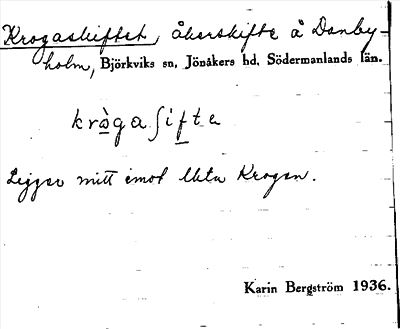 Krogaskiftet, åkerskifte å Danby-
holm, Björkviks sn, Jönåkers hd, Södermanlands län.
krògaʃifta
Ligger mitt emot Krogen.
Karin Bergström 1936.